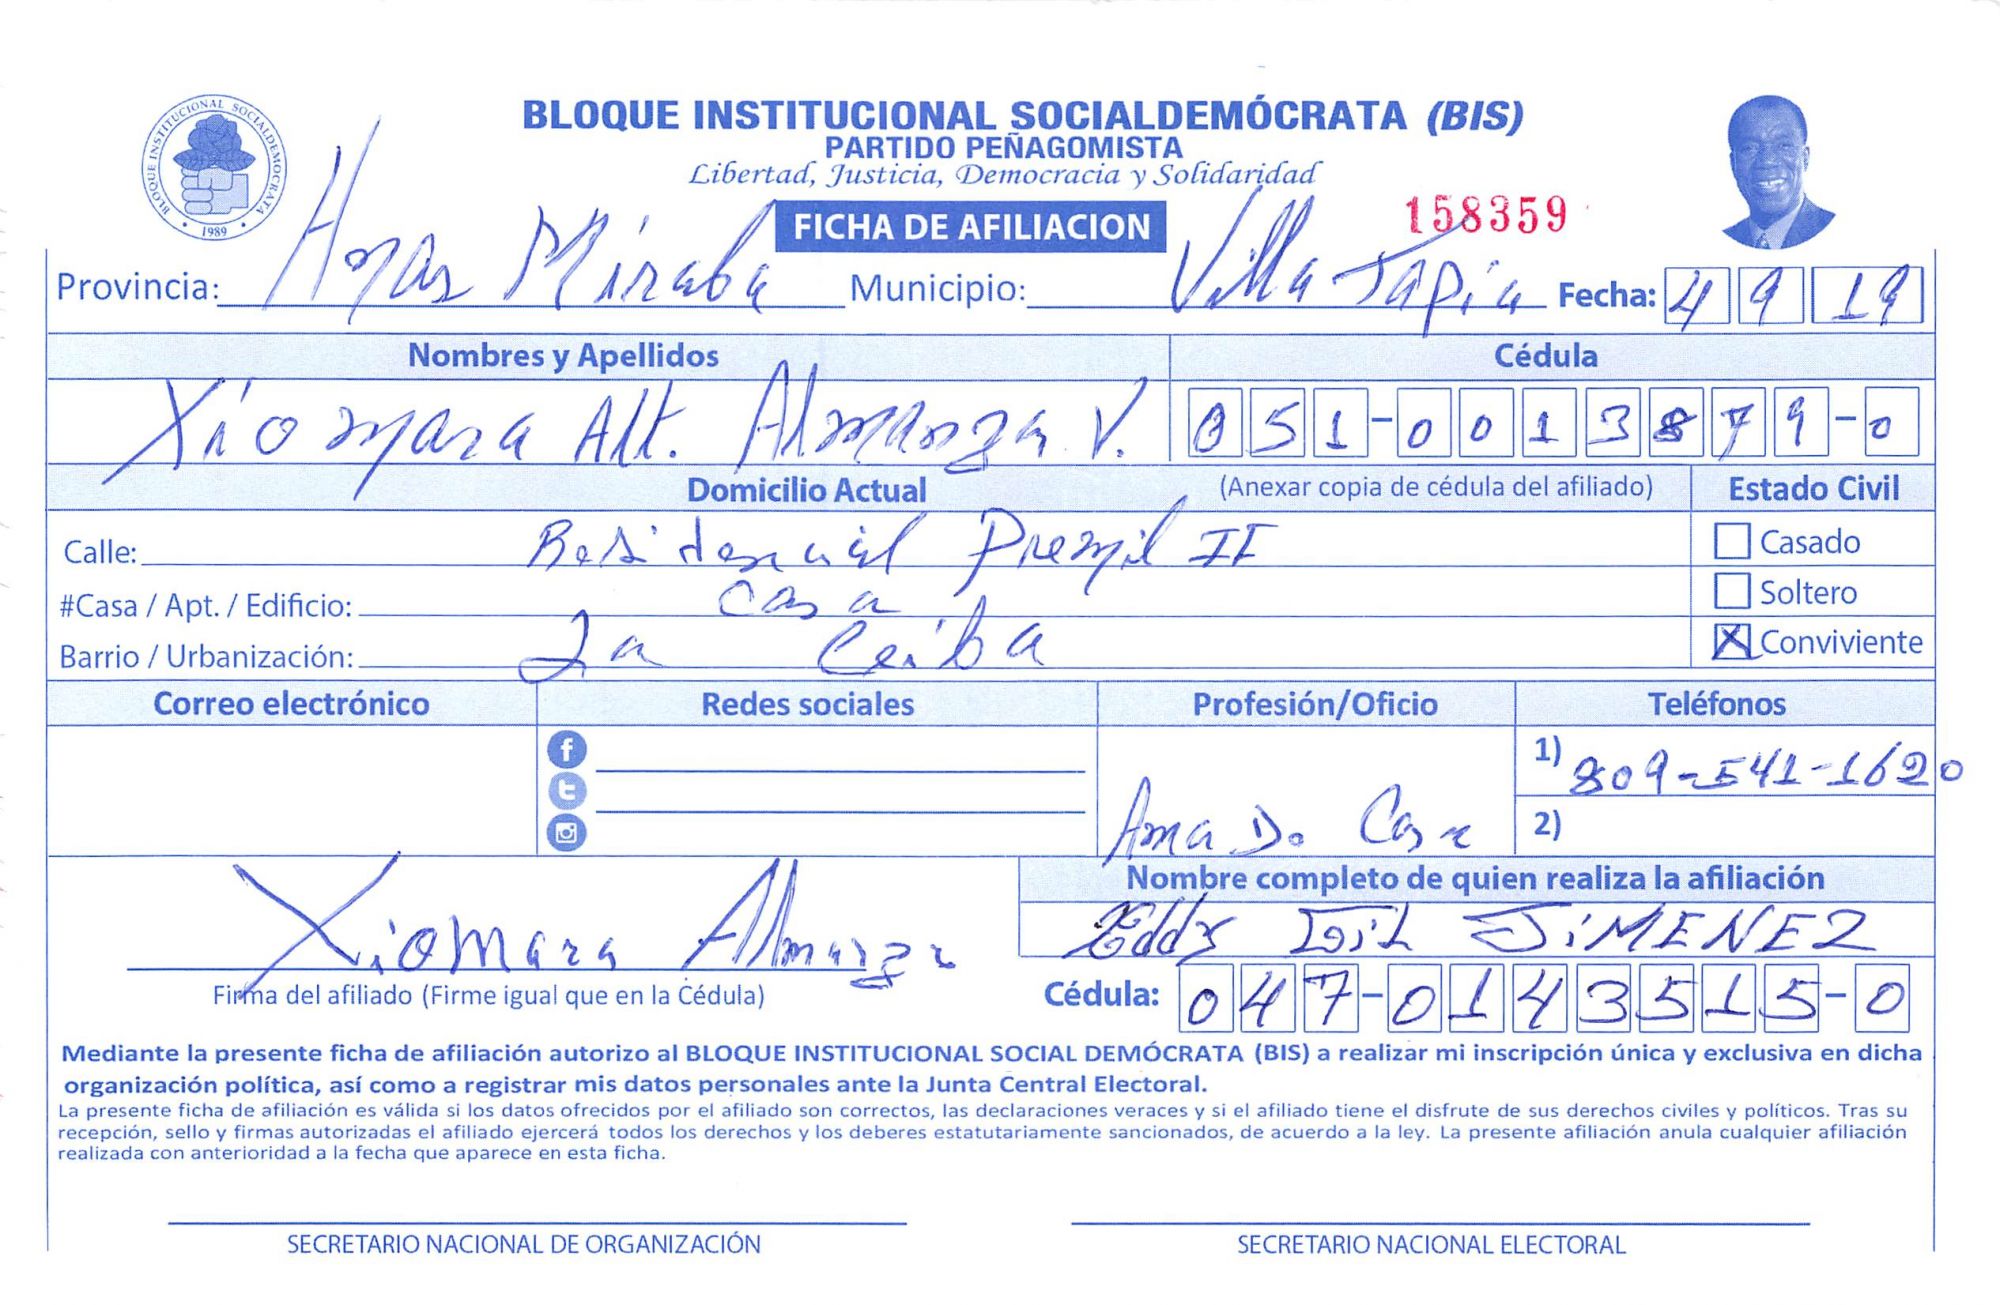 BLOQUE INSTITUCIONAL SOCIALDEMOCRATA
1989
BLOQUE INSTITUCIONAL SOCIALDEMÓCRATA (BIS)
PARTIDO PEÑAGOMISTA
Libertad, Justicia, Democracia y Solidaridad
FICHA DE AFILIACION
158359
Provincia: Hnas Miraba Municipio: Villa Tapia Fecha: 4 9 19
Nombres y Apellidos Cédula
Xiomara Alt. Almanza V. 051-0013879-0
Domicilio Actual (Anexar copia de cédula del afiliado) Estado Civil
Calle: Residencial II Casado
#Casa / Apt. / Edificio: Casa Soltero
Barrio / Urbanización: La Ceiba X Conviviente
Correo electrónico Redes sociales Profesión/Oficio Teléfonos
1) 809-541-1620
Ama De Casa 2)
Nombre completo de quien realiza la afiliación
Xiomara Almanza Eddy Gil JiMENEZ
Firma del afiliado (Firme igual que en la Cédula) Cédula: 047-0143515-0
Mediante la presente ficha de afiliación autorizo al BLOQUE INSTITUCIONAL SOCIAL DEMÓCRATA (BIS) a realizar mi inscripción única y exclusiva en dicha
organización política, así como a registrar mis datos personales ante la Junta Central Electoral.
La presente ficha de afiliación es válida si los datos ofrecidos por el afiliado son correctos, las declaraciones veraces y si el afiliado tiene el disfrute de sus derechos civiles y políticos. Tras su
recepción, sello y firmas autorizadas el afiliado ejercerá todos los derechos y los deberes estatutariamente sancionados, de acuerdo a la ley. La presente afiliación anula cualquier afiliación
realizada con anterioridad a la fecha que aparece en esta ficha.
SECRETARIO NACIONAL DE ORGANIZACIÓN SECRETARIO NACIONAL ELECTORAL